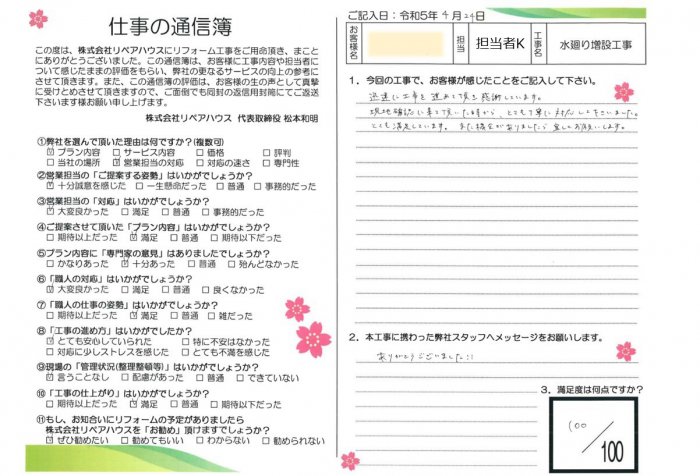 仕事の通信簿
この度は、株式会社リペアハウスにリフォーム工事をご用命頂き、まこと
にありがとうございました。この通信簿は、お客様に工事内容や担当者に
ついて感じたままの評価をもらい、弊社の更なるサービスの向上の参考に
させて頂きます。また、この通信簿の評価は、お客様の生の声として真摯
に受けとめさせて頂きますので、ご面倒でも同封の返信用封筒にてご返送
下さいます様お願い申し上げます。
株式会社リペアハウス 代表取締役 松本和明
①弊社を選んで頂いた理由は何ですか？(複数可)
☑ プラン内容 □ サービス内容 □ 価格 □ 評判
□ 当社の場所 ☑ 営業担当の対応 □ 対応の速さ □ 専門性
②営業担当の「ご提案する姿勢」はいかがでしょうか？
☑ 十分誠意を感じた □ 一生懸命だった □ 普通 □ 事務的だった
③営業担当の「対応」はいかがでしょうか？
☑ 大変良かった □ 満足 □ 普通 □ 事務的だった
④ご提案させて頂いた「プラン内容」はいかがでしょうか？
□ 期待以上だった ☑ 満足 □ 普通 □ 期待以下だった
⑤プラン内容に「専門家の意見」はありましたでしょうか？
□ かなりあった ☑ 十分あった □ 普通 □ 殆んどなかった
⑥「職人の対応」はいかがでしょうか？
☑ 大変良かった □ 満足 □ 普通 □ 良くなかった
⑦「職人の仕事の姿勢」はいかがでしょうか？
□ 期待以上だった ☑ 満足 □ 普通 □ 雑だった
⑧「工事の進め方」はいかがでしたか？
☑ とても安心していられた □ 特に不安はなかった
□ 対応に少しストレスを感じた □ とても不満を感じた
⑨現場の「管理状況(整理整頓等)」はいかがでしょうか？
☑ 言うことなし □ 配慮があった □ 普通 □ できていない
⑩「工事の仕上がり」はいかがでしょうか？
□ 期待以上だった ☑ 満足 □ 普通 □ 期待以下だった
⑪もし、お知合いにリフォームの予定がありましたら
株式会社リペアハウスを「お勧め」頂けますでしょうか？
☑ ぜひ勧めたい □ 勧めてもいい □ わからない □ 勧められない
ご記入日：令和5年4月24日
お客様名 担当 担当者K 工事名 水廻り増設工事
1．今回の工事で、お客様が感じたことをご記入して下さい。
迅速に工事を進めて頂き感謝しています。
現地確認に来て頂いた時から、とても丁寧に対応して下さいました。
とても満足しています。また機会がありましたら宜しくお願いします。
2．本工事に携わった弊社スタッフへメッセージをお願いします。
ありがとうございました!!
3．満足度は何点ですか？
100／100